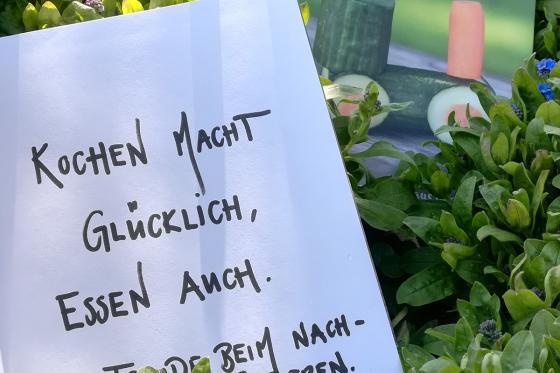 KOCHEN MACHT
GLÜCKLICH,
ESSEN AUCH.
BEIM NACH-